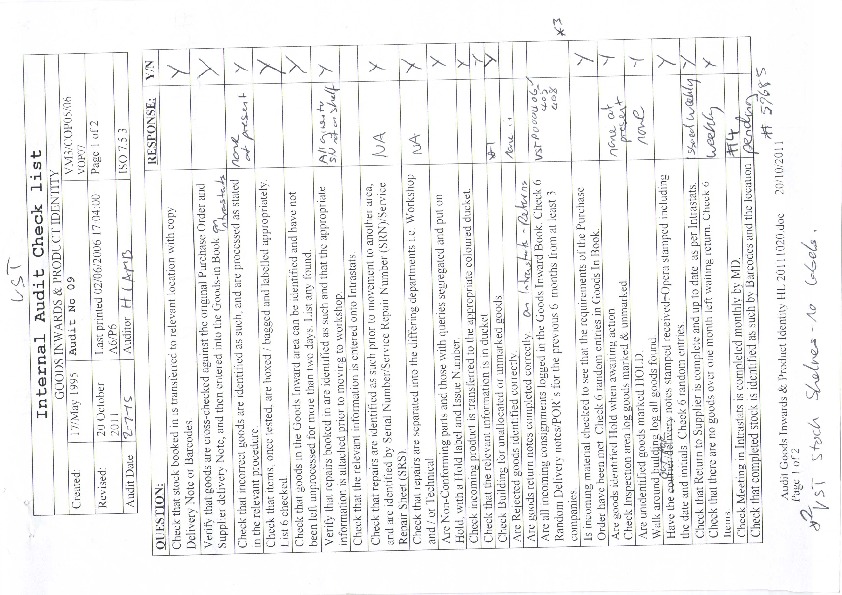 VST
Internal Audit Check list
GOODS INWARDS & PRODUCT IDENTITY
Created: 17/May 1995 Audit No 09 VM3/COP05/06 VOP/7
Revised: 20 October 2011 Last printed 02/06/2006 17:04:00 A6/P6 Page 1 of 2
Audit Date 2-7-15 Auditor H LAMB ISO 7.5.3
QUESTION: RESPONSE: Y/N
Check that stock booked in is transferred to relevant location with copy
Delivery Note or Barcodes Y
Verify that goods are cross-checked against the original Purchase Order and
Supplier delivery Note, and then entered into the Goods-in Book on Intrastats Y
Check that incorrect goods are identified as such, and are processed as stated
in the relevant procedure. none at present Y
Check that items, once tested, are boxed / bagged and labelled appropriately.
List 6 checked Y
Check that goods in the Goods Inward area can be identified and have not
been left unprocessed for more than two days. List any found. Y
Verify that repairs booked in are identified as such and that the appropriate
information is attached prior to moving to workshop Y
Check that the relevant information is entered onto Intrastats.
Check that repairs are identified as such prior to movement to another area,
and are identified by Serial Number/Service Repair Number (SRN)/Service
Repair Sheet (SRS). NA Y
Check that repairs are separated into the differing departments i.e. Workshop
and / or Technical NA Y
Are Non-Conforming parts and those with queries segregated and put on
Hold, with a Hold label and Issue Number. Y
Check incoming product is transferred to the appropriate coloured ducket. Y
Check that the relevant information is in ducket Y
Check Building for unallocated or unmarked goods #1 Y
Are Rejected goods identified correctly. none
Are goods return notes completed correctly on Intrastats - Returns
Are all incoming consignments logged in the Goods Inward Book. Check 6
Random Delivery notes/POR's for the previous 6 months from at least 3
companies 403 408 *3
Is incoming material checked to see that the requirements of the Purchase
Order have been met. Check 6 random entries in Goods In Book. Y
Are goods identified Hold when awaiting action none at present Y
Check Inspection area log goods marked & unmarked
Are unidentified goods marked HOLD. none Y
Walk around building log all goods found.
Have the delivery notes stamped received+Opera stamped including
the date and initials. Check 6 random entries Y
Check that Return to Supplier is complete and up to date as per Intrastats. weekly Y
Check that there are no goods over one month left waiting return. Check 6
Items. weekly Y
Check Meeting in Intrastats is completed monthly by MD. #4
Check that completed stock is identified as such by Barcodes and the location pending
# 57685
Audit Goods Inwards & Product Identity HL 20111020.doc 20/10/2011
Page 1 of 2
#2 VST Stock Shelves - no labels.